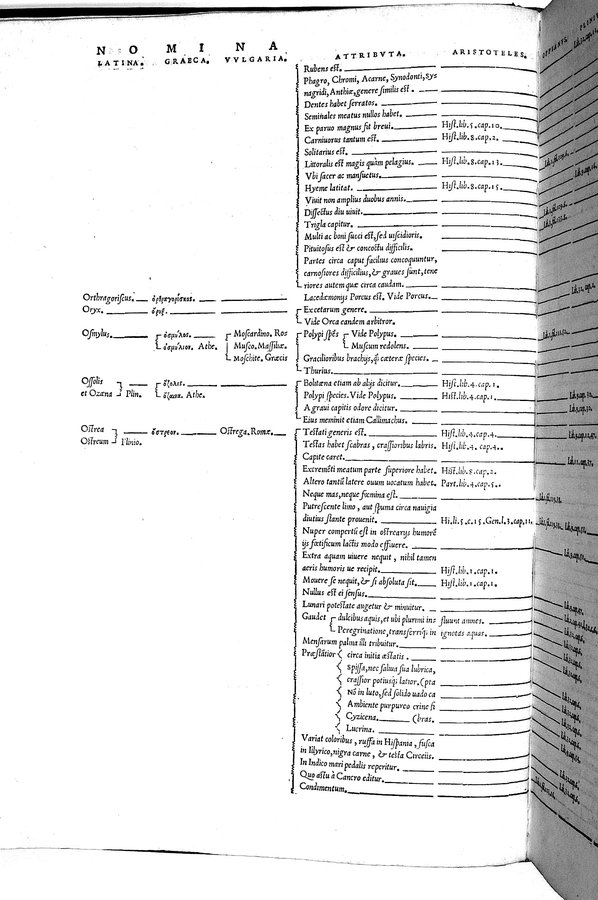 N O M I N A
LATINA. GRAECA. VVLGARIA. ATTRIBVTA. ARISTOTELES.
Rubens est.
Phagro, Chromi, Acarne, Synodonti, Sy
nagridi, Anthiæ, genere similis est.
Dentes habet serratos.
Seminales meatus nullos habet.
Ex paruo magnus fit breui. Hist.lib.5.cap.10.
Carniuorus tantum est. Hist.lib.8.cap.2.
Solitarius est.
Littoralis est magis quàm pelagius. Hist.lib.8.cap.13.
Vbi sacer ac mansuetus.
Hyeme latitat. Hist.lib.8.cap.15.
Viuit non amplius duobus annis.
Dissectus diu uiuit.
Trigla capitur.
Multi ac boni succi est, sed uiscidioris.
Pituitosus est & concoctu difficilis.
Partes circa caput facilius concoquuntur,
carnosiores difficilius, & graues sunt, tene
riores autem quæ circa caudam.
Orthragoriscus. ὀρθραγορίσκος. Lacedæmonijs Porcus est. Vide Porcus.
Oryx. ὄρυξ. Excetarum genere.
Vide Orca eandem arbitror.
Osmylus. ὀσμύλος. Moscardino. Ros Polypi spēs Vide Polypus.
ὀσμύλος. Athe. Musco. Massiliæ. Muscum redolens.
Moschite. Græcis Gracilioribus brachijs, q̃ cæteræ species.
Thurius.
Ossolis ὄζολις. Bolitæna etiam ab alijs dicitur. Hist.lib.4.cap.1.
et Ozæna Plin. ὄζαινα. Athe. Polypi species. Vide Polypus. Hist.lib.4.cap.1.
A graui capitis odore dicitur.
Eius meminit etiam Callimachus.
Ostrea ὄστρεον. Ostrega. Romæ. Testati generis est. Hist.lib.4.cap.4.
Ostreum Plinio. Testas habet scabras, crassioribus labris. Hist.lib.4.cap.4.
Capite caret.
Excremēti meatum parte superiore habet. Hist.lib.8.cap.2.
Altero tantū latere ouum uocatum habet. Part.lib.4.cap.5.
Neque mas, neque fœmina est.
Putrescente limo, aut spuma circa nauigia
diutius stante prouenit. Hi.li.5.c.15.Gen.l.3.cap.11.
Nuper compertū est in ostrearys humorē
ijs fœtificum lactis modo effluere.
Extra aquam uiuere nequit, nihil tamen
aeris humoris ue recipit. Hist.lib.1.cap.1.
Mouere se nequit, & si absoluta sit. Hist.lib.1.cap.1.
Nullus est ei sensus.
Lunari potestate augetur & minuitur.
Gaudet dulcibus aquis, et ubi plurimi ins fluunt amnes.
Peregrinatione, transferriq; in ignotas aquas.
Mensarum palma illi tribuitur.
Præstātior circa initia æstatis.
Spissa, nec saliua sua lubrica,
crassior potiusq; latior. (pta
Nō in luto, sed solido uado ca
Ambiente purpureo crine fi
Cyzicena. (bras.
Lucrina.
Variat coloribus, ruffa in Hispania, fusca
in Illyrico, nigra carne, & testa Circeiis.
In Indico mari pedalis reperitur.
Quo astu à Cancro editur.
Condimentum.